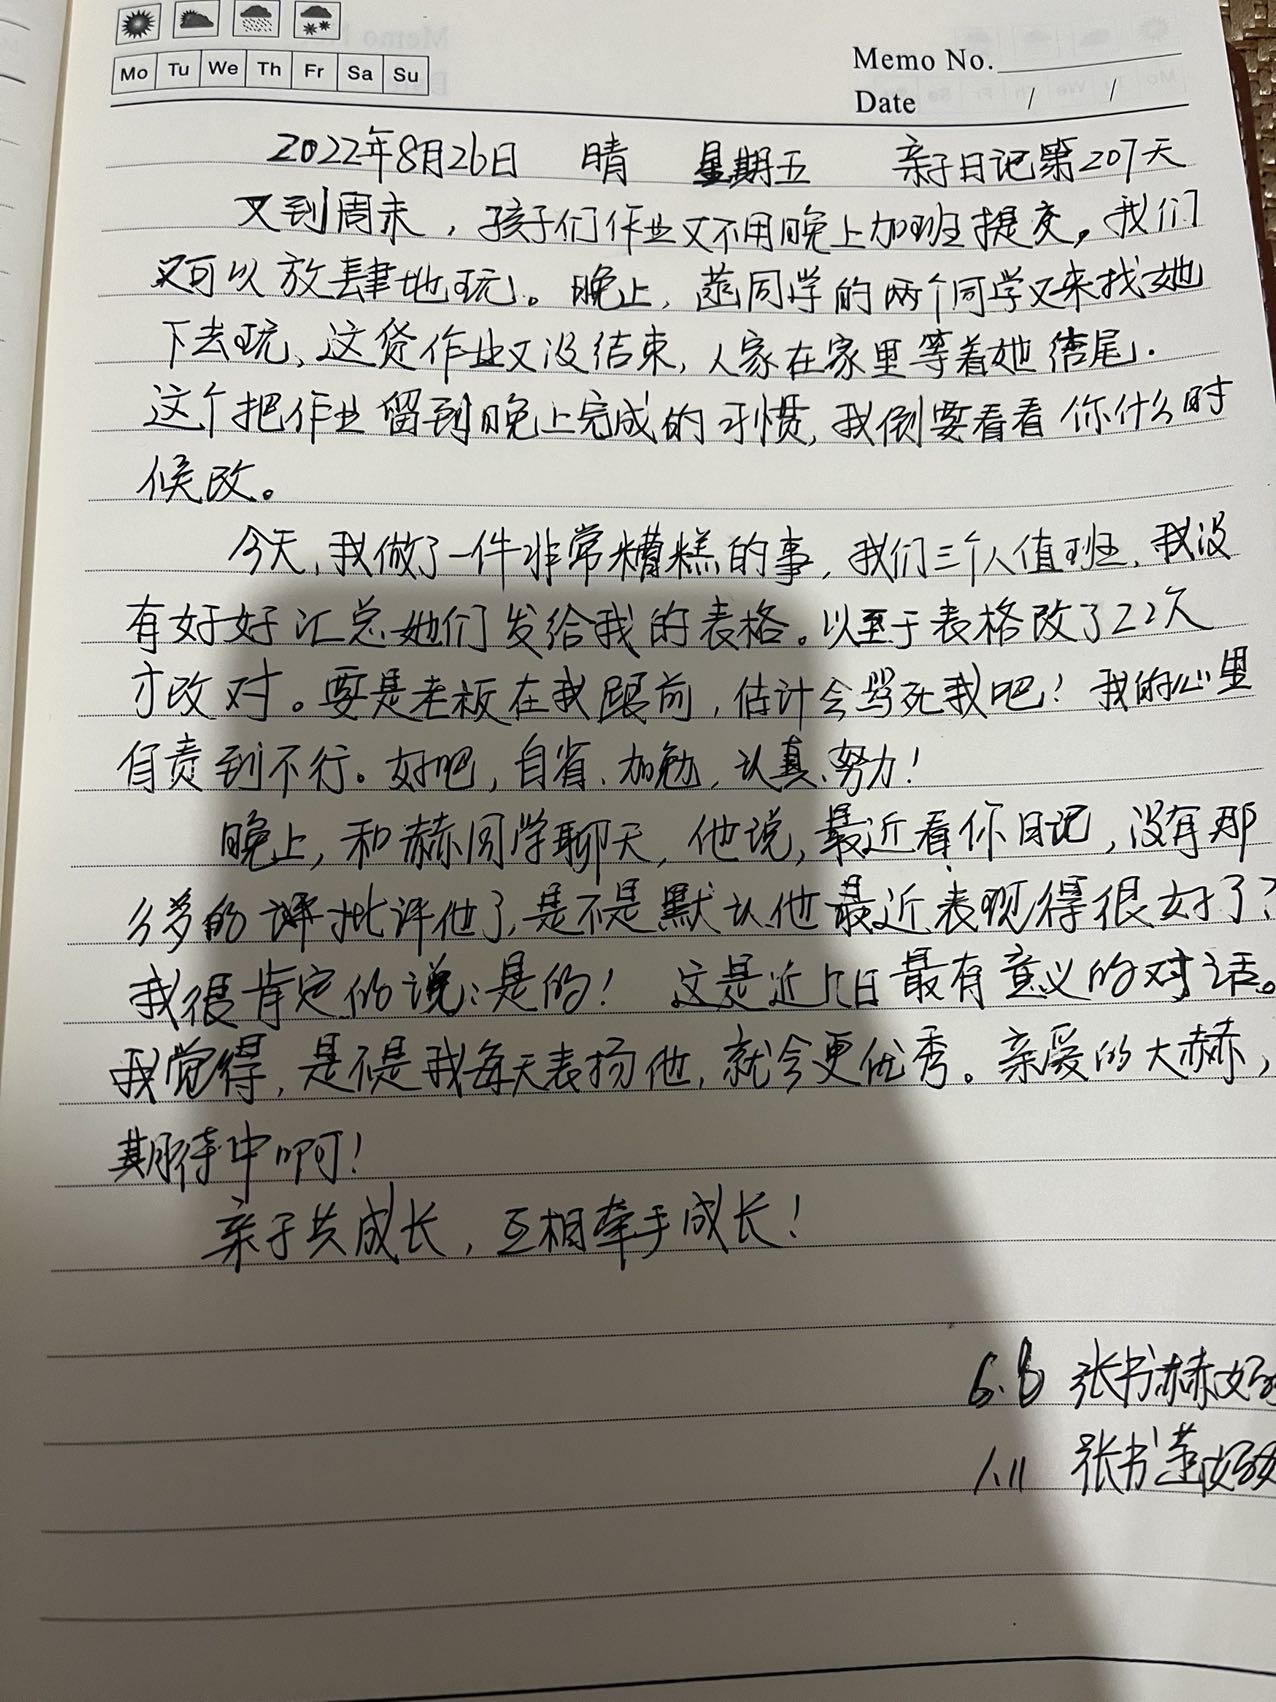 Mo Tu We Th Fr Sa Su
Memo No.
Date / /
2022年8月26日 晴 星期五 亲子日记第207天
又到周末，孩子们作业又不用晚上加班提交，我们
又可以放肆地玩。晚上，菡同学的两个同学又来找她
下去玩、这货作业又没结束，人家在家里等着她结尾.
这个把作业留到晚上完成的习惯，我倒要看看你什么时
候改。
今天，我做了一件非常糟糕的事，我们三个人值班，我没
有好好汇总她们发给我的表格。以至于表格改了22次
才改对。要是老板在我跟前，估计会骂死我吧！我的心里
自责到不行。好吧，自省、加勉，认真、努力！
晚上，和赫同学聊天，他说，最近看你日记，没有那
么多的评批评他了，是不是默认他最近表现得很好了？
我很肯定的说：是的！ 这是近几日最有意义的对话。
我觉得，是不是我每天表扬他，就会更优秀。亲爱的大赫，
期待中啊！
亲子共成长，互相牵手成长！
6.8 张书赫妈
1.11 张书菡妈妈